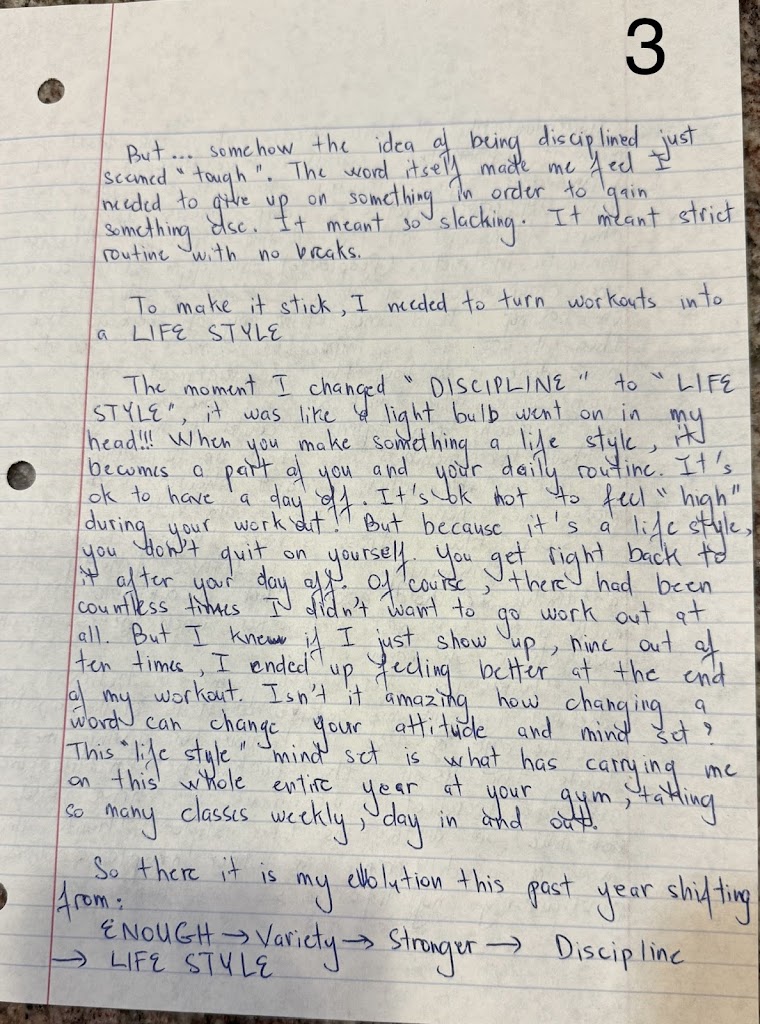 3
But... somehow the idea of being disciplined just
seemed "tough". The word itself made me feel I
needed to give up on something in order to gain
something else. It meant so slacking. It meant strict
routine with no breaks.
To make it stick, I needed to turn workouts into
a LIFE STYLE
The moment I changed "DISCIPLINE" to "LIFE
STYLE", it was like a light bulb went on in my
head!!! When you make something a life style, it
becomes a part of you and your daily routine. It's
ok to have a day off. It's ok not to feel "high"
during your workout! But because it's a life style,
you don't quit on yourself. You get right back to
it after your day off. Of course, there had been
countless times I didn't want to go work out at
all. But I knew if I just show up, nine out of
ten times, I ended up feeling better at the end
of my workout. Isn't it amazing how changing a
word can change your attitude and mind set?
This "life style" mind set is what has carrying me
on this whole entire year at your gym, taking
so many classes weekly, day in and out.
So there it is my evolution this past year shifting
from:
ENOUGH → Variety → Stronger → Discipline
→ LIFE STYLE